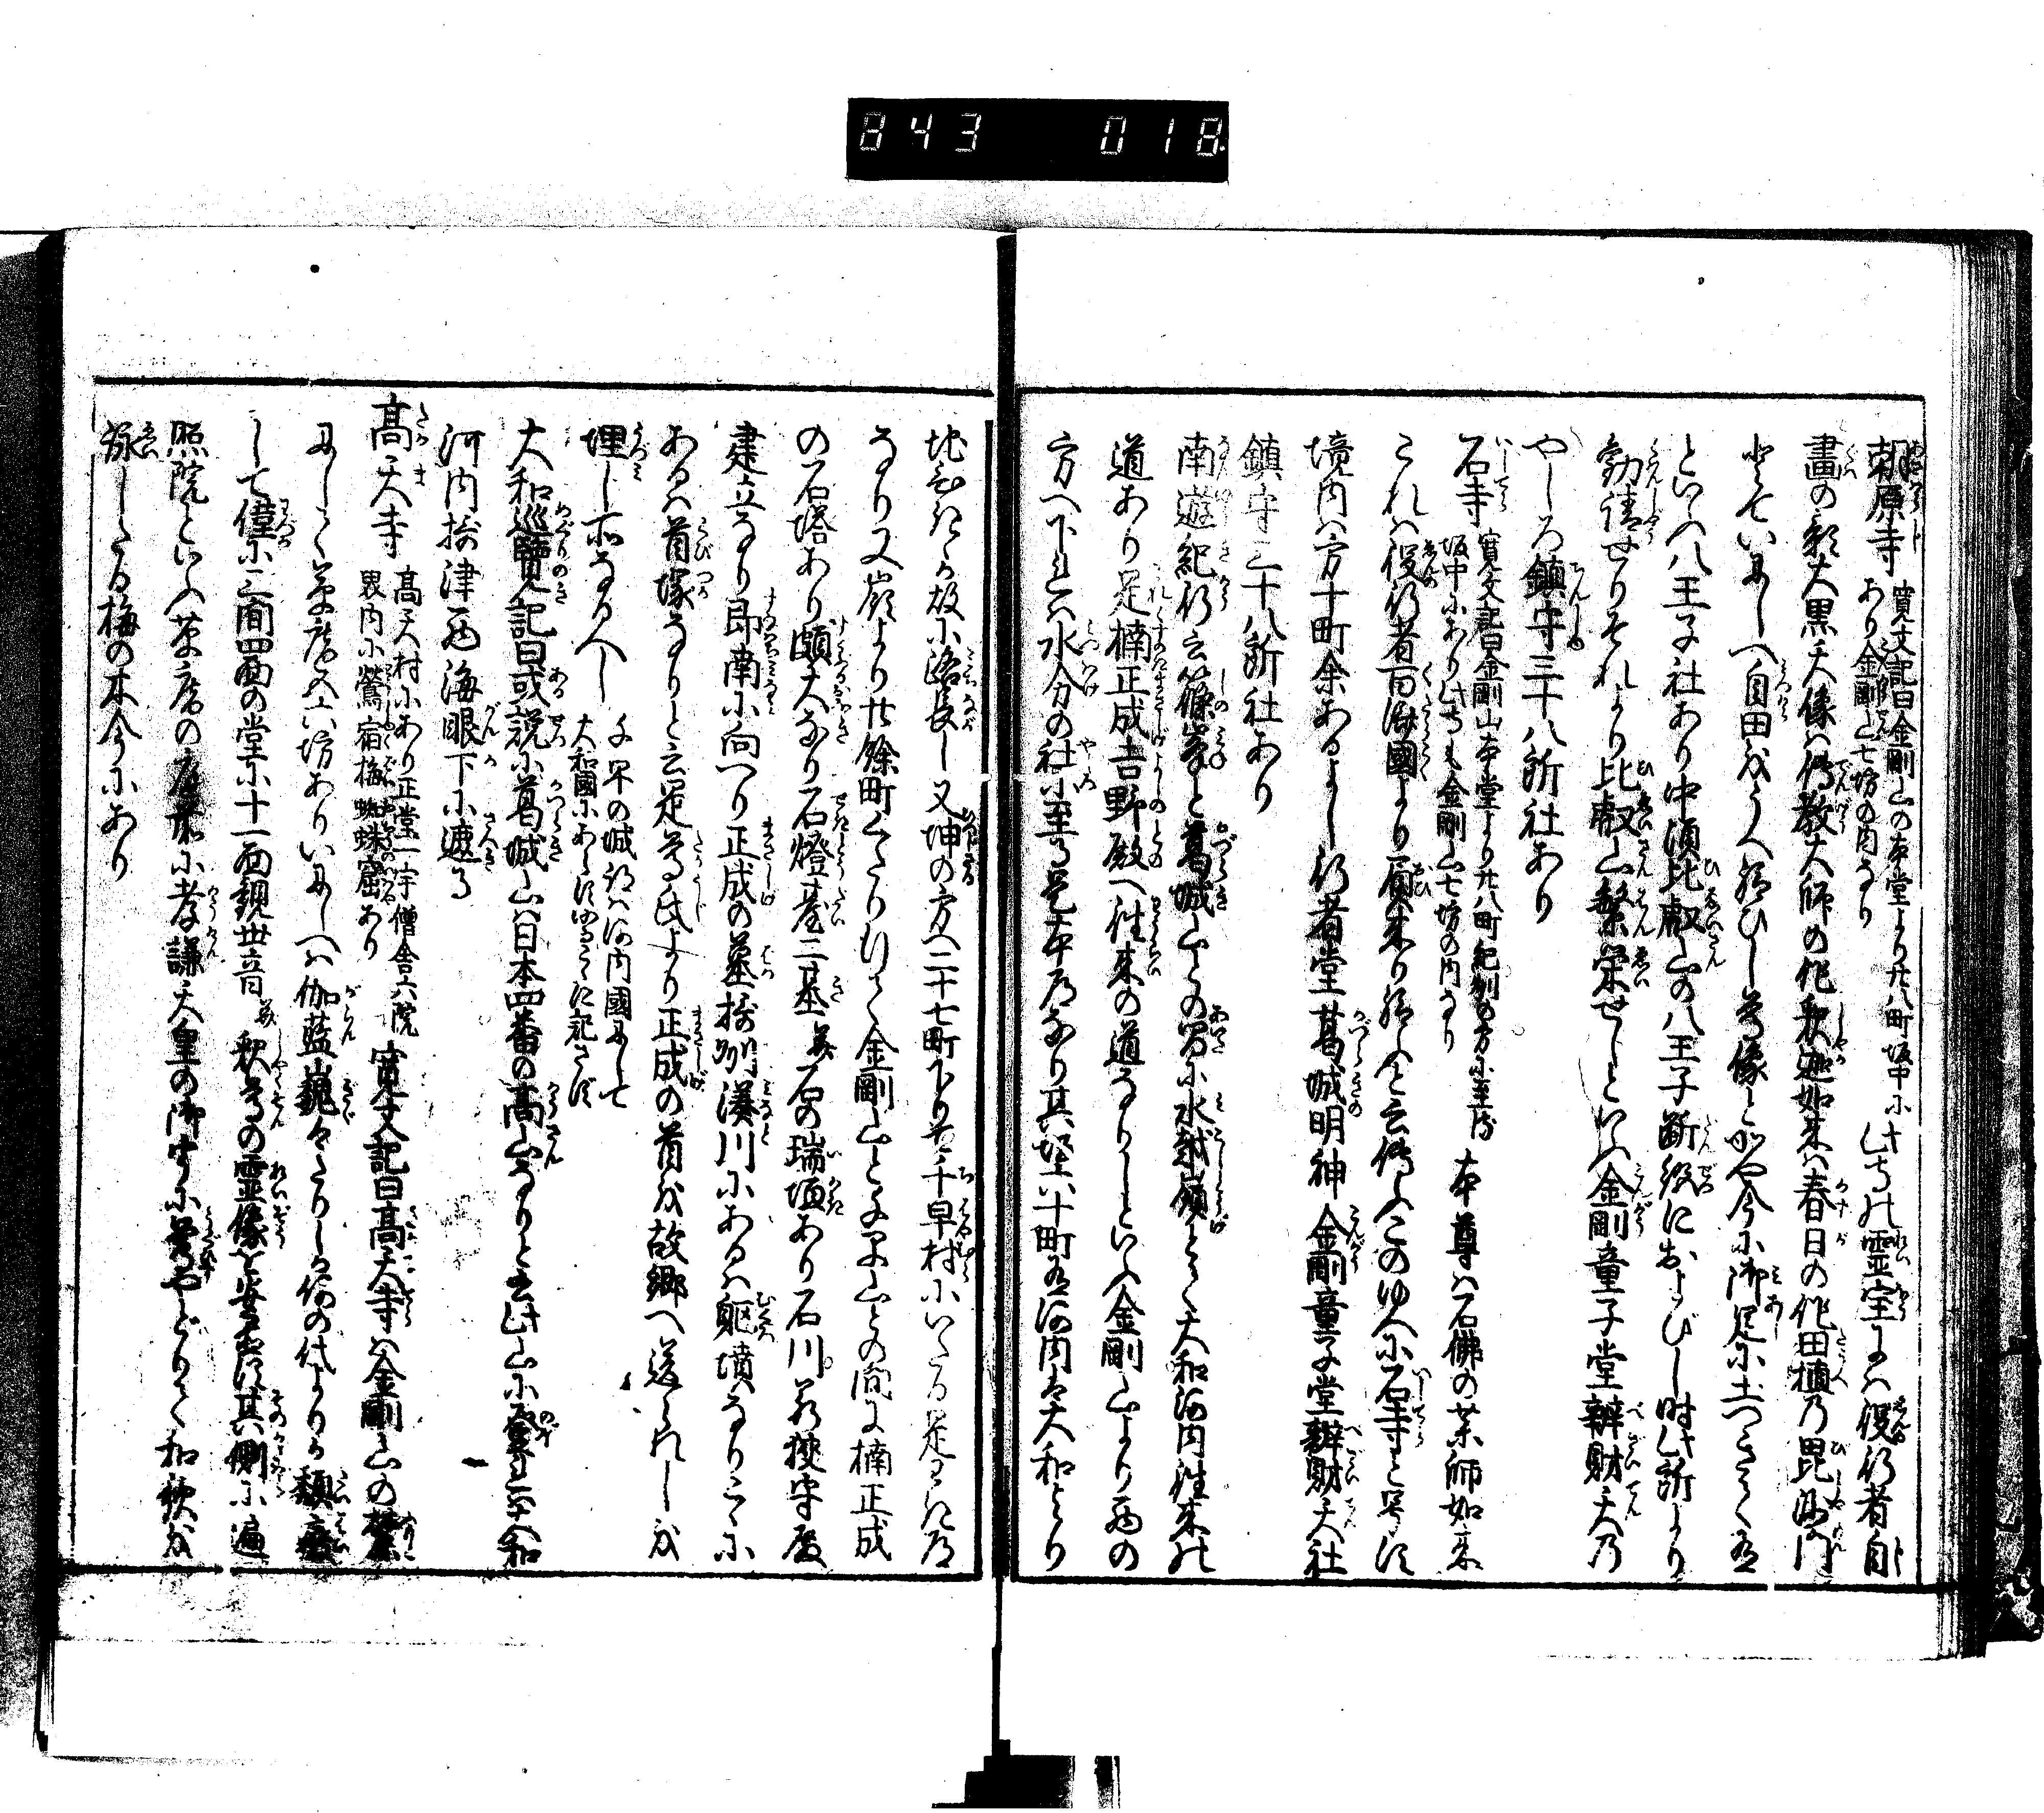 843 018
朝原寺 寛文記曰金剛山の本堂より廿八町坂中に
あり金剛山七坊の内なり 此寺の霊宝には役行者自
畫の彩大黒天像は傳教大師の作釈迦如来は春日の作田植乃毘沙門
とていにしへ自田をうへ給ひし尊像とかや今に御足に土つきて有
といへり八王子社あり中頃比叡山の八王子断絶におよびし時此所より
勧請せりそれより比叡山繁栄せしといへり金剛童子堂辨財天乃
やしろ鎮守三十八所社あり
石寺 寛文記曰金剛山本堂より廿八町紀州の方に至る
坂中にあり此寺も金剛山七坊の内なり 本尊は石佛の薬師如来
これは役行者百済國より負来り給ふと云傳ふこのゆへに石寺と号す
境内は方十町余あるよし行者堂葛城明神金剛童子堂辨財天社
鎮守三十八所社あり
南遊紀行云篠峯と葛城山との間に水越嶺とて大和河内往来の
道あり是楠正成吉野殿へ往来の道なりしといへり金剛山より西の
方へ下れば水分の社に至る是本道なり其坂八十町有河内は大和より
地ひきし故に路長し又坤の方へ二十七町下りて千早村にいたる是うら道
なり又嶺より廿餘町くだり行て金剛山と千早山との間に楠正成
の石塔あり頗大なり石燈臺二基并石の瑞垣あり石川若狭守殿
建立なり即南に向へり正成の墓摂州湊川にあるは躯墳なりここに
あるは首塚なりと云是尊氏より正成の首を故郷へ送られしを
埋し所なるべし 千早の城跡は河内國にして
大和國にあらずゆへに記さず
大和巡覧記曰或説に葛城山は日本四番の高山なりと云此山に登れば大和
河内摂津西海眼下に遮る
高天寺 高天村にあり正堂一宇僧舎六院
界内に鶯宿梅蜘蛛窟あり 寛文記曰高天寺は金剛山の麓
にして草庵五六坊ありいにしへは伽藍巍々たりしが何の代よりか頽廃
して僅に三間四面の堂に十一面観世音并釈尊の霊像を安置す其側に遍
照院といふ草庵の庭前に孝謙天皇の御宇に鶯やどりて和歌を
詠じたる梅の木今にあり